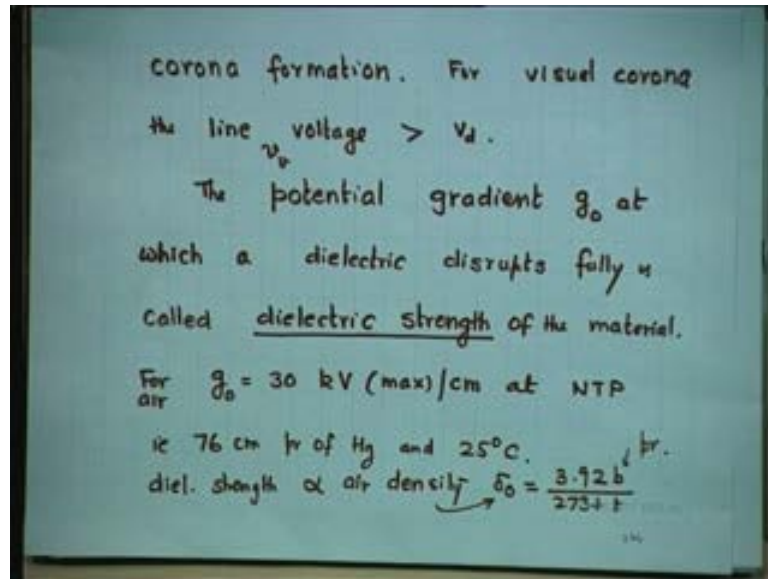 corona formation. For visual corona
the line voltage > Vd.
vv
The potential gradient g₀ at
which a dielectric disrupts fully is
called dielectric strength of the material.
For air g₀ = 30 kV (max)/cm at NTP
ie 76 cm pr of Hg and 25°C. pr.
diel. strength α air density δ₀ = 3.92b / 273+t